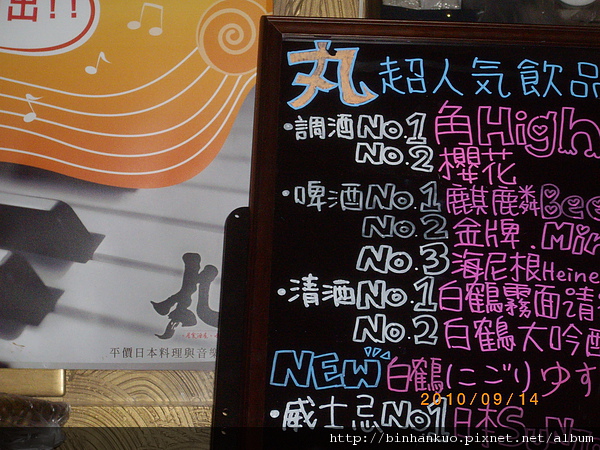 出!!
丸
平價日本料理與音樂
丸 超人気飲品
•調酒No.1 角High
No.2 櫻花
•啤酒No.1 麒麟Bee
No.2 金牌.Min
No.3 海尼根Heine
•清酒No.1 白鶴霧面清酒
No.2 白鶴大吟釀
NEW 白鶴にごりゆず
•威士忌No1 日本Sun
2010/09/14
http://binhankuo.pixnet.net/album